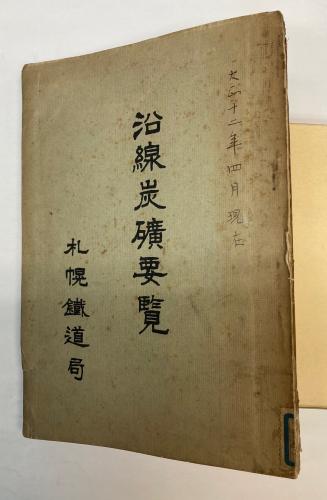 大正十二年四月現在
沿線炭礦要覧
札幌鐵道局